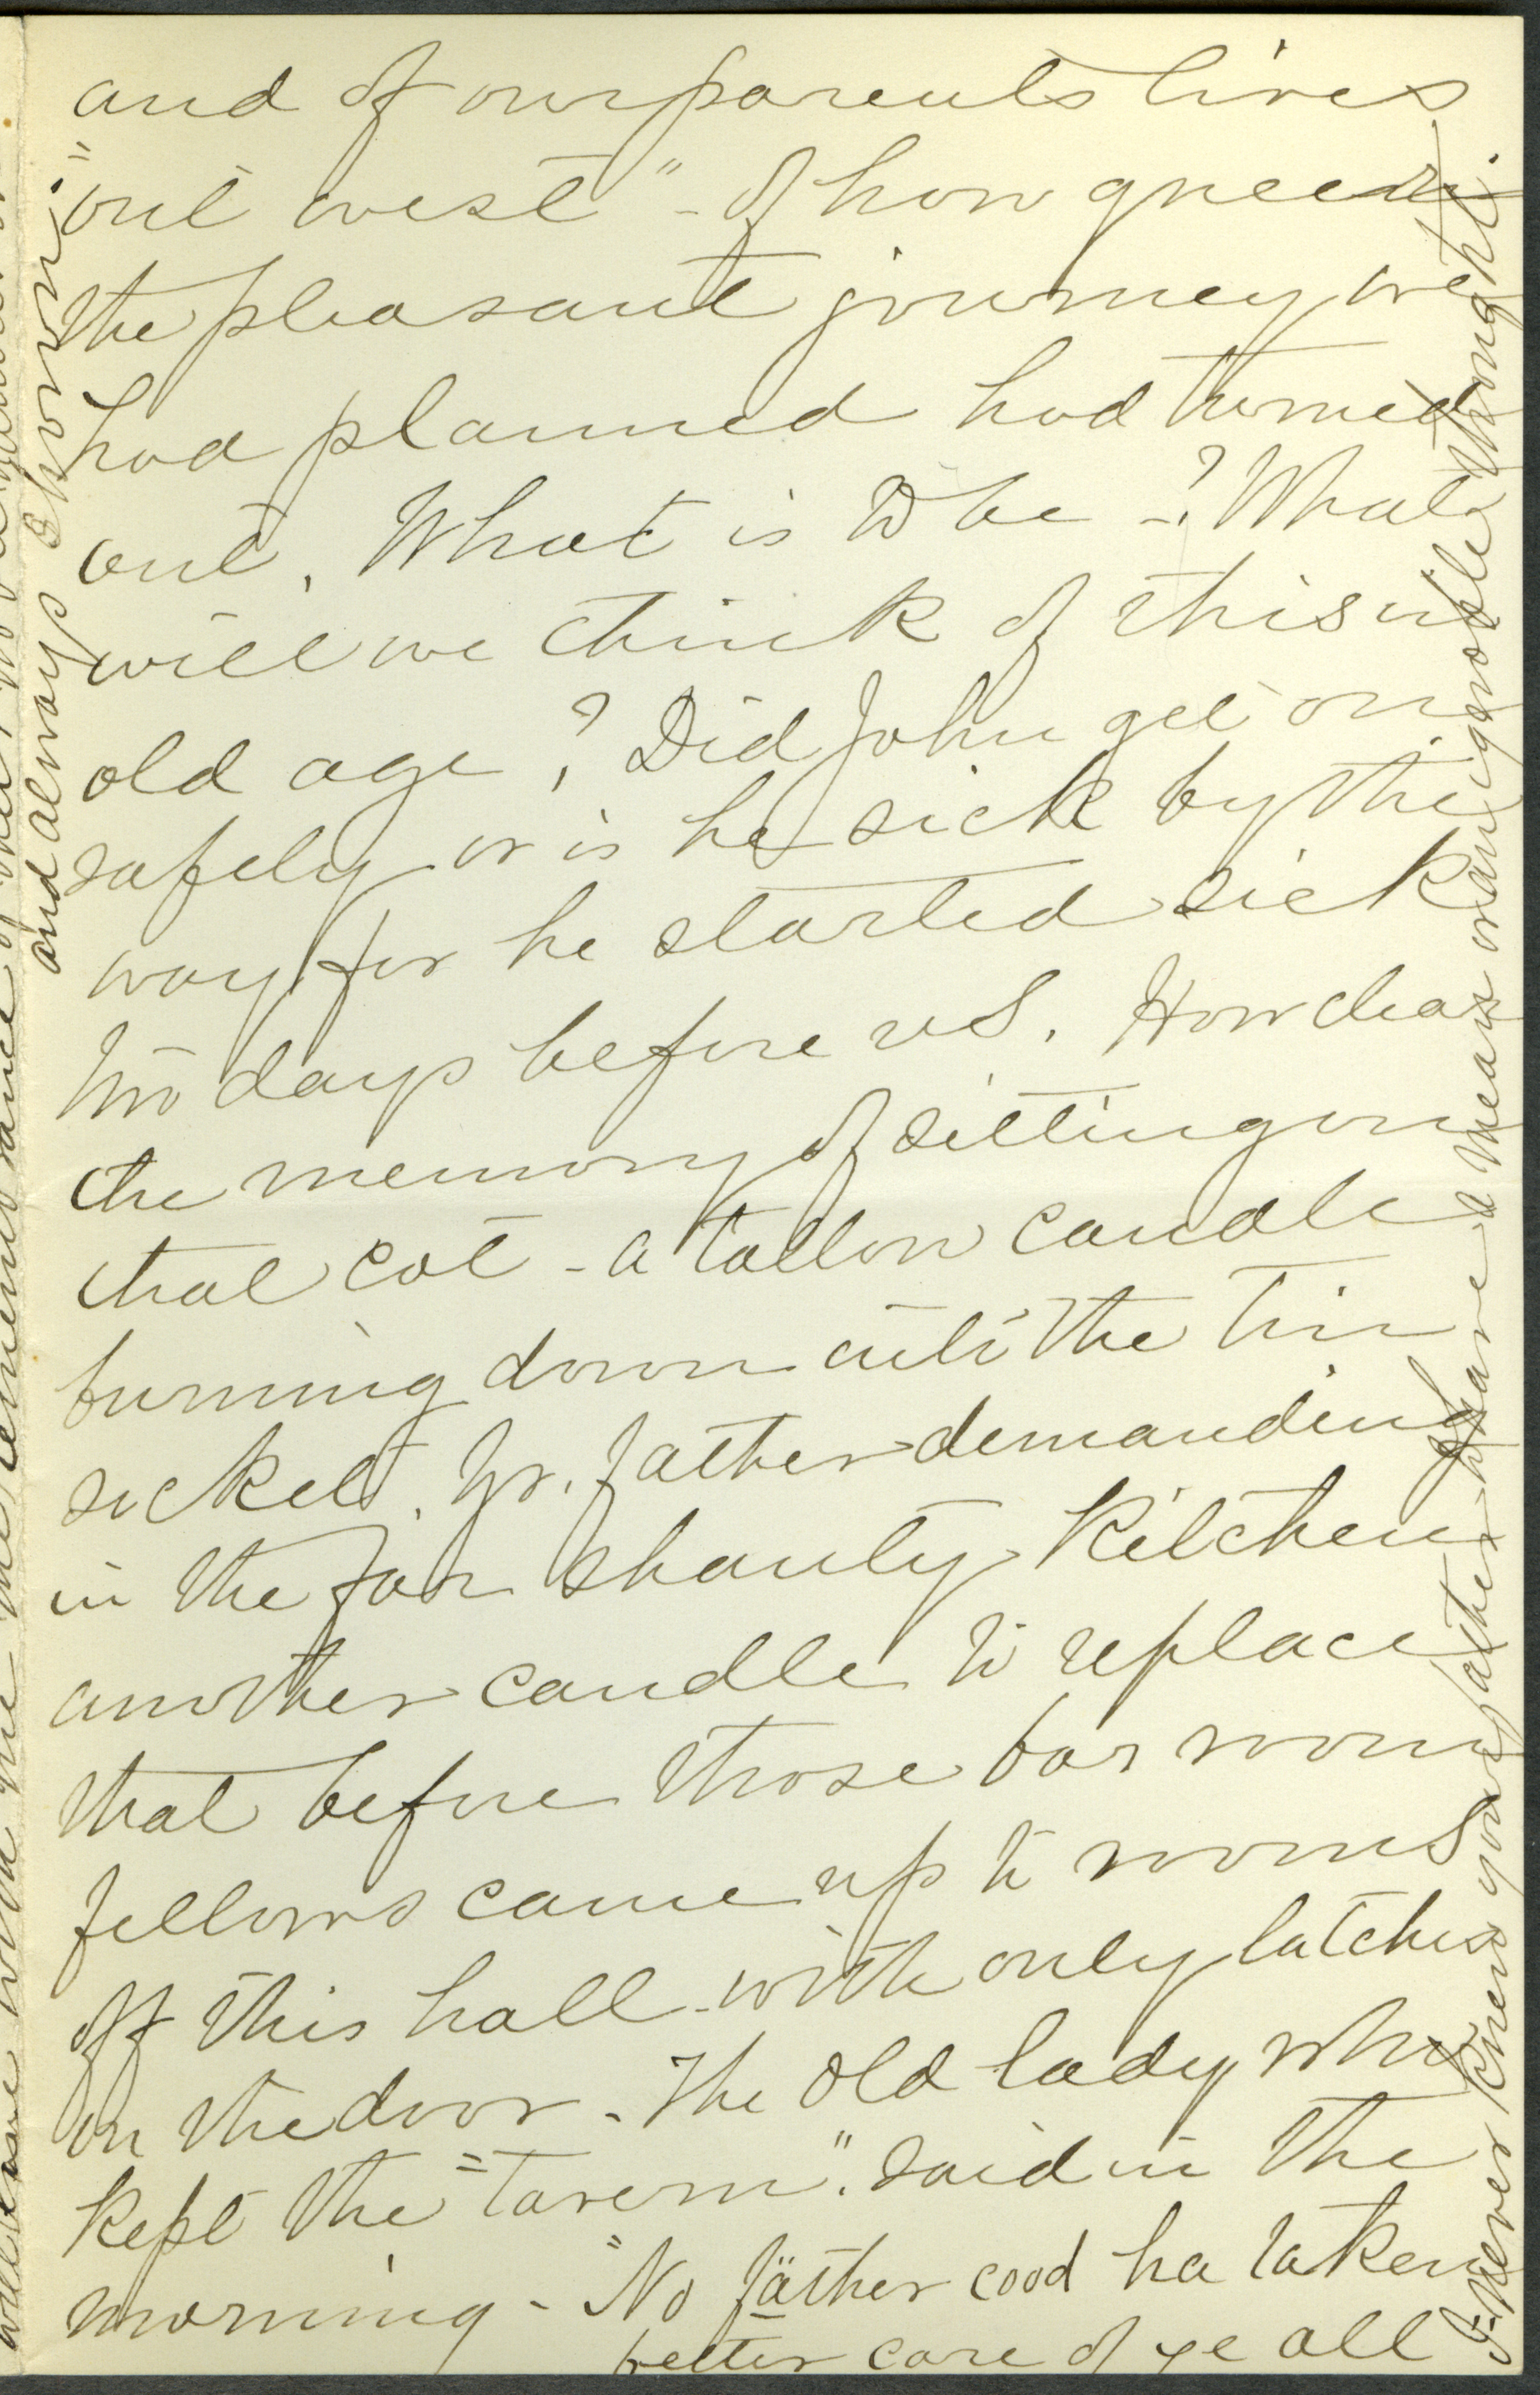 and of our parents lives
"out west" - of how queerly
the pleasant journey we
had planned had turned
out. What is to be -? What
will we think of this in
old age? Did John get on
safely or is he sick by the
way for he started sick
two days before us. How clear
the memory of sitting on
that cot - a tallow candle
burning down into the tin
socket. Yr. father demanding
in the far shanty kitchen
another candle to replace
that before those bar room
fellows came up to rooms
off this hall - with only latches
on the door. The old lady who
kept the "tavern". said in the
morning - "No father cood ha taken
better care of ye all
I never knew your father to have a mean or an ignoble thought.
and always